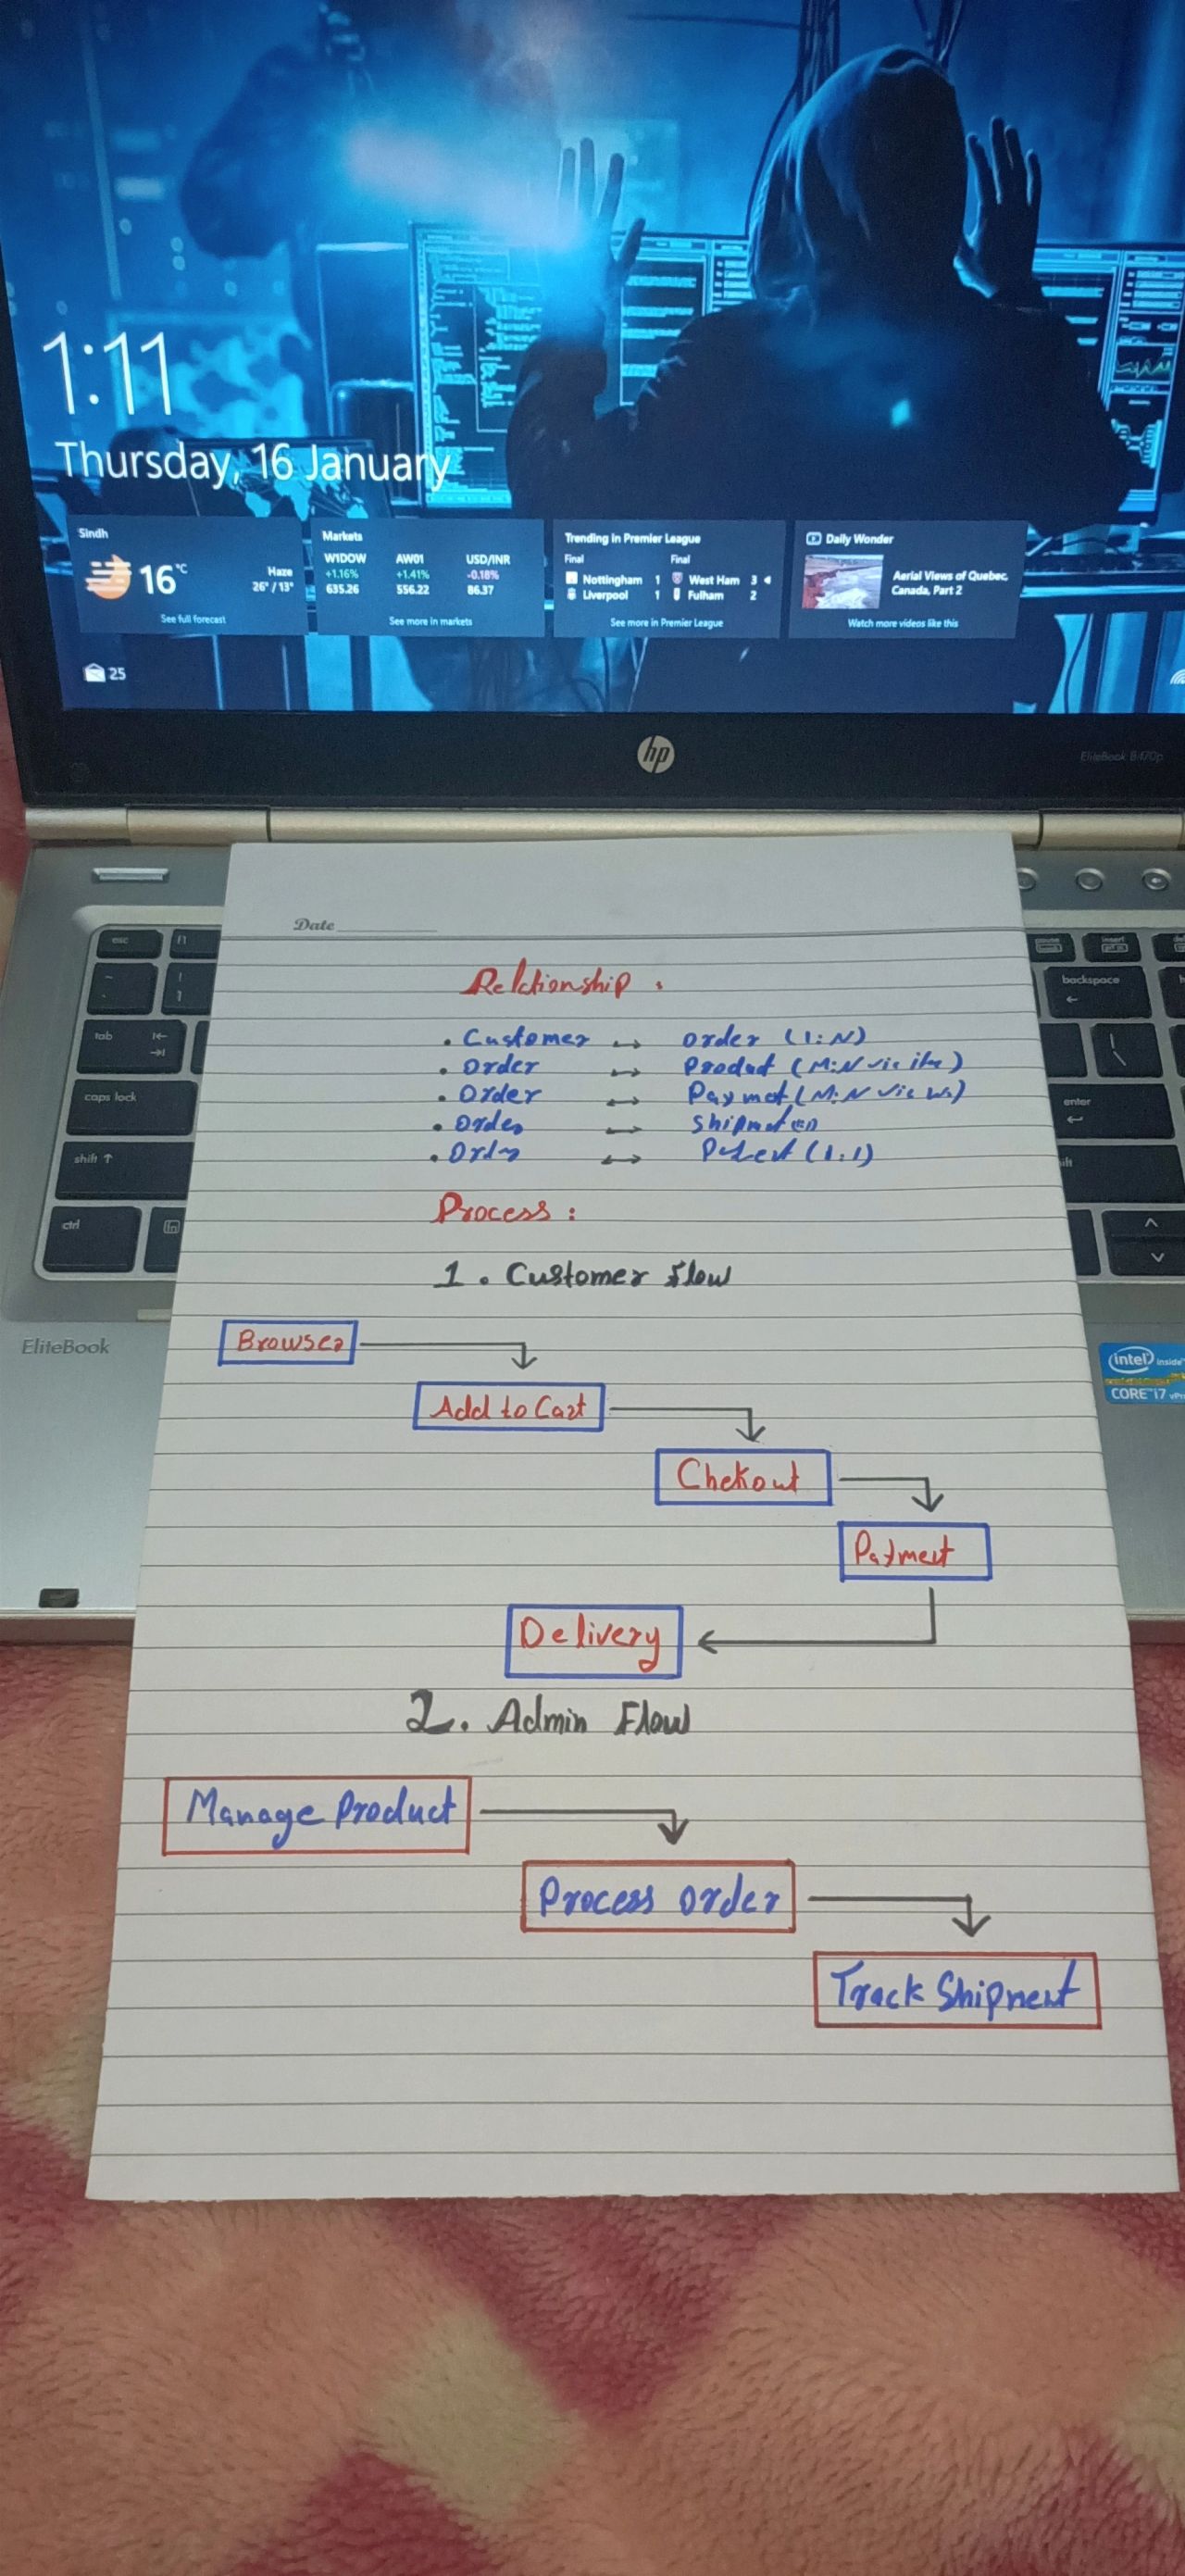 1:11
Thursday, 16 January
Sindh
16°C
Haze
26° / 13°
See full forecast
Markets
WIDOW AW01 USD/INR
+1.16% +1.41% -0.18%
635.26 556.22 86.37
See more in markets
Trending in Premier League
Final Final
Nottingham 1 West Ham 3
Liverpool 1 Fulham 2
See more in Premier League
Daily Wonder
Aerial Views of Quebec,
Canada, Part 2
Watch more videos like this
25
hp
EliteBook 8470p
Date
esc f1
tab
caps lock
shift
ctrl fn
backspace
enter
EliteBook
intel inside
CORE i7
Relationship :
. Customer ↔ order (1:N)
. order ↔ Product (M:N via
. Order ↔ (M:N
. Order ↔
. ↔ (1:1)
Process :
1. Customer Flow
Browser
Add to Cart
Chekout
Payment
Delivery
2. Admin Flow
Manage Product
Process order
Track Shipment